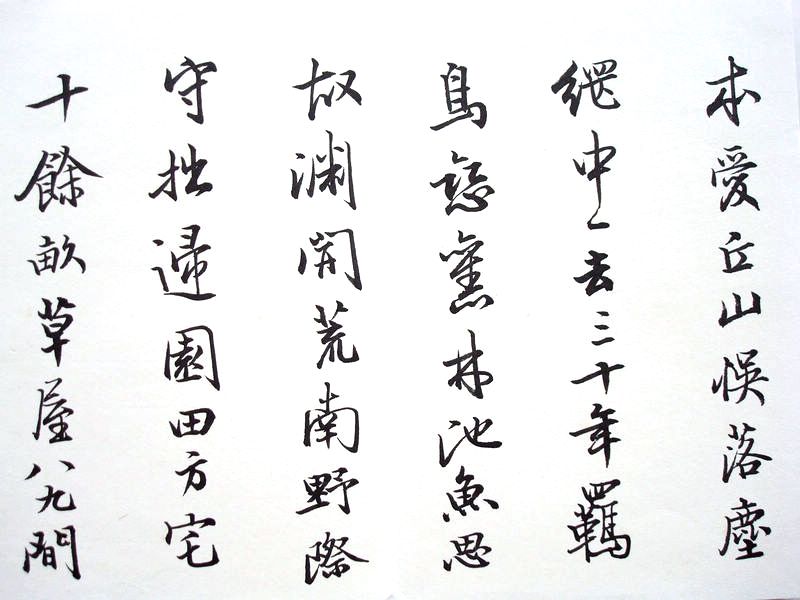 本愛丘山悮落塵
網中一去三十年羈
鳥戀舊林池魚思
故淵開荒南野際
守拙歸園田方宅
十餘畝草屋八九間